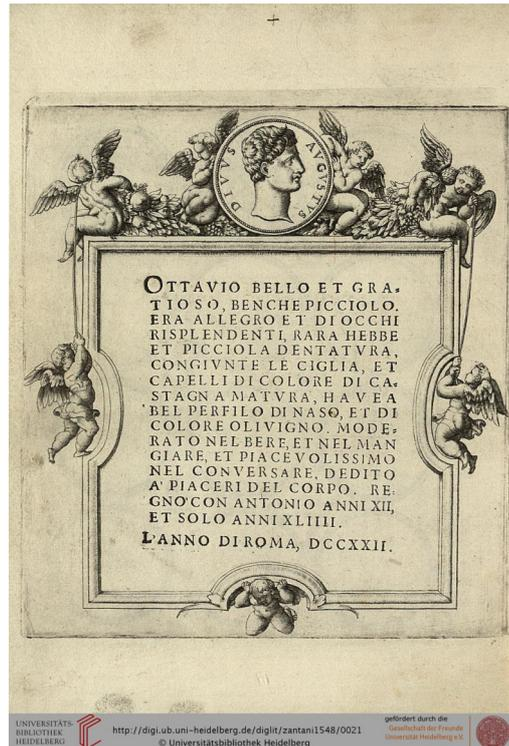 DIVVS AVGVSTVS
OTTAVIO BELLO ET GRA=
TIOSO, BENCHE PICCIOLO.
ERA ALLEGRO ET DI OCCHI
RISPLENDENTI, RARA HEBBE
ET PICCIOLA DENTATVRA,
CONGIVNTE LE CIGLIA, ET
CAPELLI DI COLORE DI CA=
STAGNA MATVRA, HAVEA
BEL PERFILO DI NASO, ET DI
COLORE OLIVIGNO. MODE=
RATO NEL BERE, ET NEL MAN
GIARE, ET PIACEVOLISSIMO
NEL CONVERSARE, DEDITO
A' PIACERI DEL CORPO. RE=
GNO' CON ANTONIO ANNI XII,
ET SOLO ANNI XLIIII.
L'ANNO DI ROMA, DCCXXII.
UNIVERSITÄTS-
BIBLIOTHEK
HEIDELBERG
http://digi.ub.uni-heidelberg.de/diglit/zantani1548/0021
© Universitätsbibliothek Heidelberg
gefördert durch die
Gesellschaft der Freunde
Universität Heidelberg e.V.